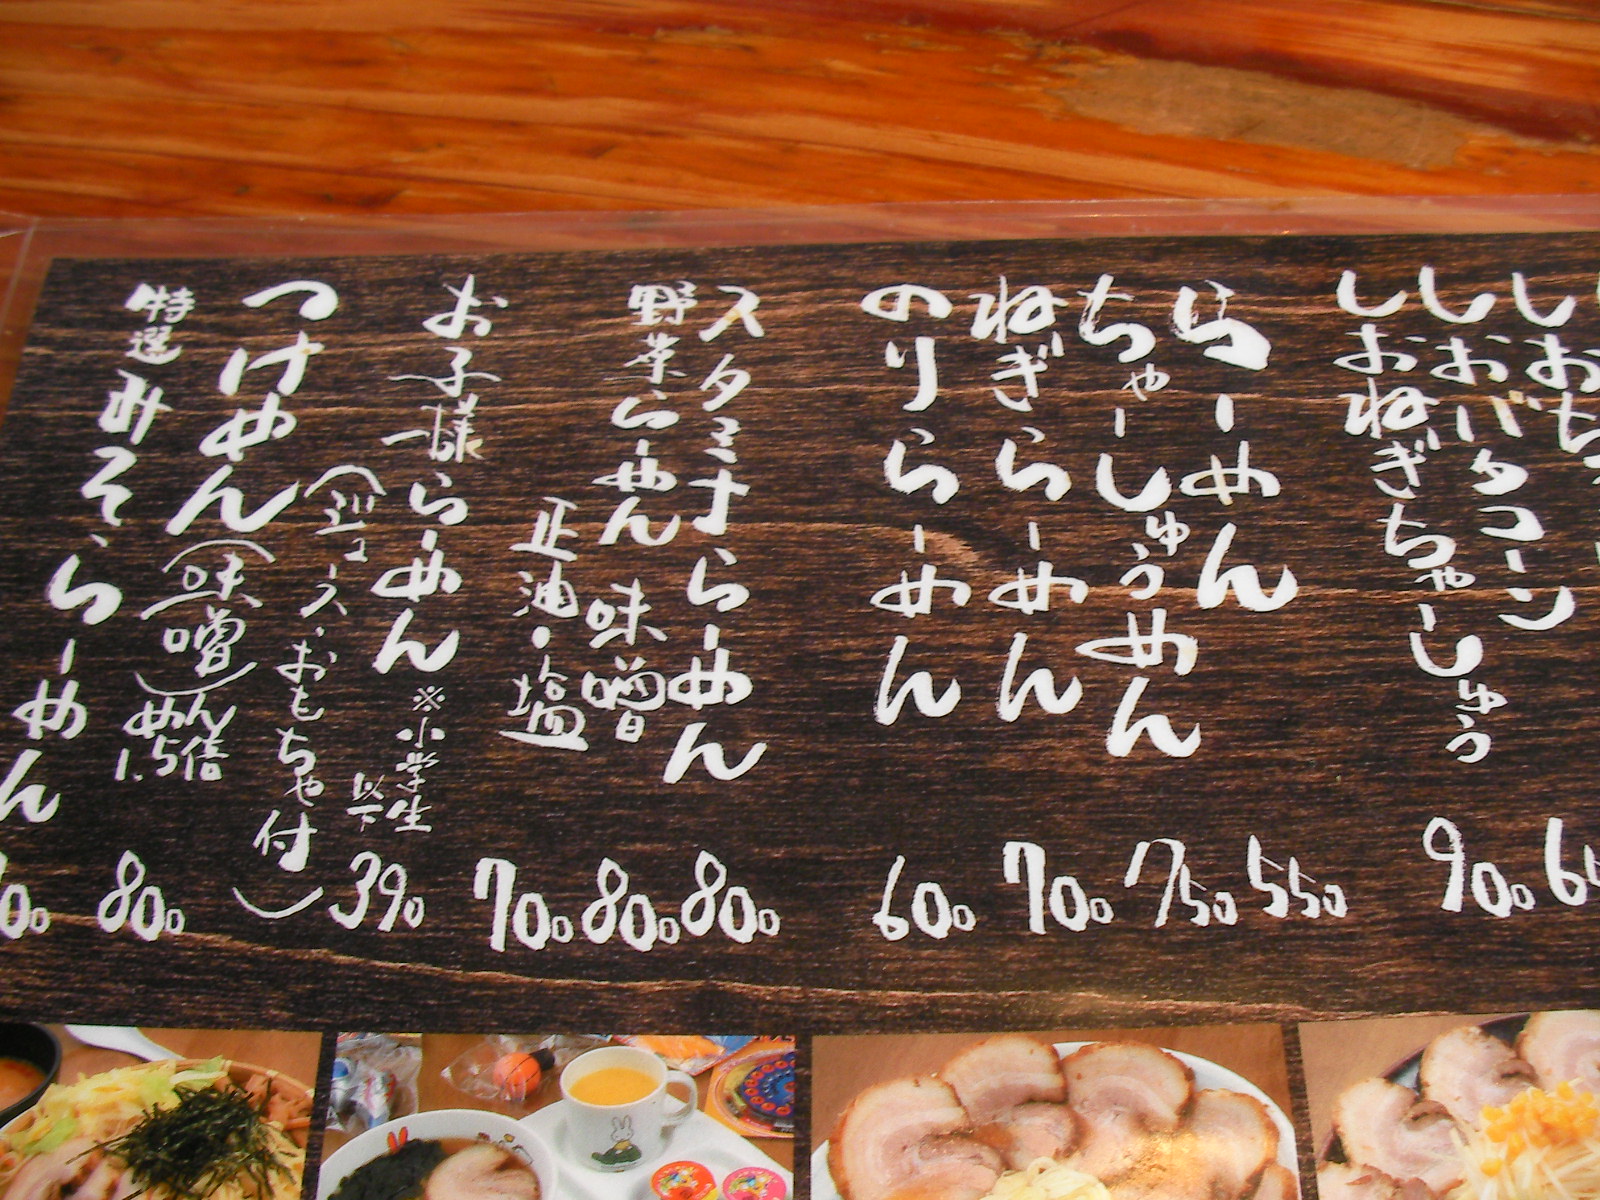 しおち
しおバタコーン
しおねぎちゃーしゅう 900
らーめん 550
ちゃーしゅうめん 750
ねぎらーめん 700
のりらーめん 600
スタミナらーめん 800
野菜らーめん 味噌 800
正油・塩 700
お子様らーめん ※小学生以下 390
(ジュース、おもちゃ付)
つけめん(味噌)めん1.5倍 800
特選みそらーめん